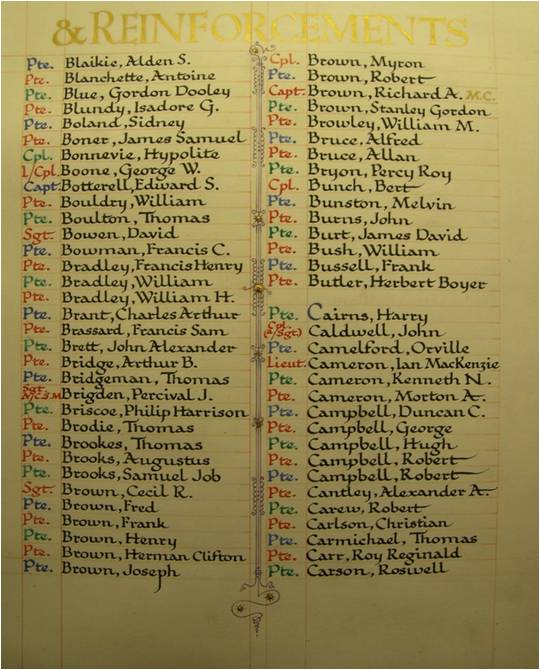 & REINFORCEMENTS
Pte. Blaikie, Alden S.
Pte. Blanchette, Antoine
Pte. Blue, Gordon Dooley
Pte. Blundy, Isadore G.
Pte. Boland, Sidney
Pte. Boner, James Samuel
Cpl. Bonnevie, Hypolite
L/Cpl. Boone, George W.
Capt. Botterell, Edward S.
Pte. Bouldry, William
Pte. Boulton, Thomas
Sgt. Bowen, David
Pte. Bowman, Francis C.
Pte. Bradley, Francis Henry
Pte. Bradley, William
Pte. Bradley, William H.
Pte. Brant, Charles Arthur
Pte. Brassard, Francis Sam
Pte. Brett, John Alexander
Pte. Bridge, Arthur B.
Pte. Bridgeman, Thomas
Sgt. Brigden, Percival J.
Pte. Briscoe, Philip Harrison
Pte. Brodie, Thomas
Pte. Brookes, Thomas
Pte. Brooks, Augustus
Pte. Brooks, Samuel Job
Sgt. Brown, Cecil R.
Pte. Brown, Fred
Pte. Brown, Frank
Pte. Brown, Henry
Pte. Brown, Herman Clifton
Pte. Brown, Joseph
Cpl. Brown, Myron
Pte. Brown, Robert
Capt. Brown, Richard A. M.C.
Pte. Brown, Stanley Gordon
Pte. Browley, William M.
Pte. Bruce, Alfred
Pte. Bruce, Allan
Pte. Bryon, Percy Roy
Cpl. Bunch, Bert
Pte. Bunston, Melvin
Pte. Burns, John
Pte. Burt, James David
Pte. Bush, William
Pte. Bussell, Frank
Pte. Butler, Herbert Boyer
Pte. Cairns, Harry
Cpl. (a/Sgt) Caldwell, John
Pte. Camelford, Orville
Lieut. Cameron, Ian MacKenzie
Pte. Cameron, Kenneth N.
Pte. Cameron, Morton A.
Pte. Campbell, Duncan C.
Pte. Campbell, George
Pte. Campbell, Hugh
Pte. Campbell, Robert
Pte. Campbell, Robert
Pte. Cantley, Alexander A.
Pte. Carew, Robert
Pte. Carlson, Christian
Pte. Carmichael, Thomas
Pte. Carr, Roy Reginald
Pte. Carson, Roswell